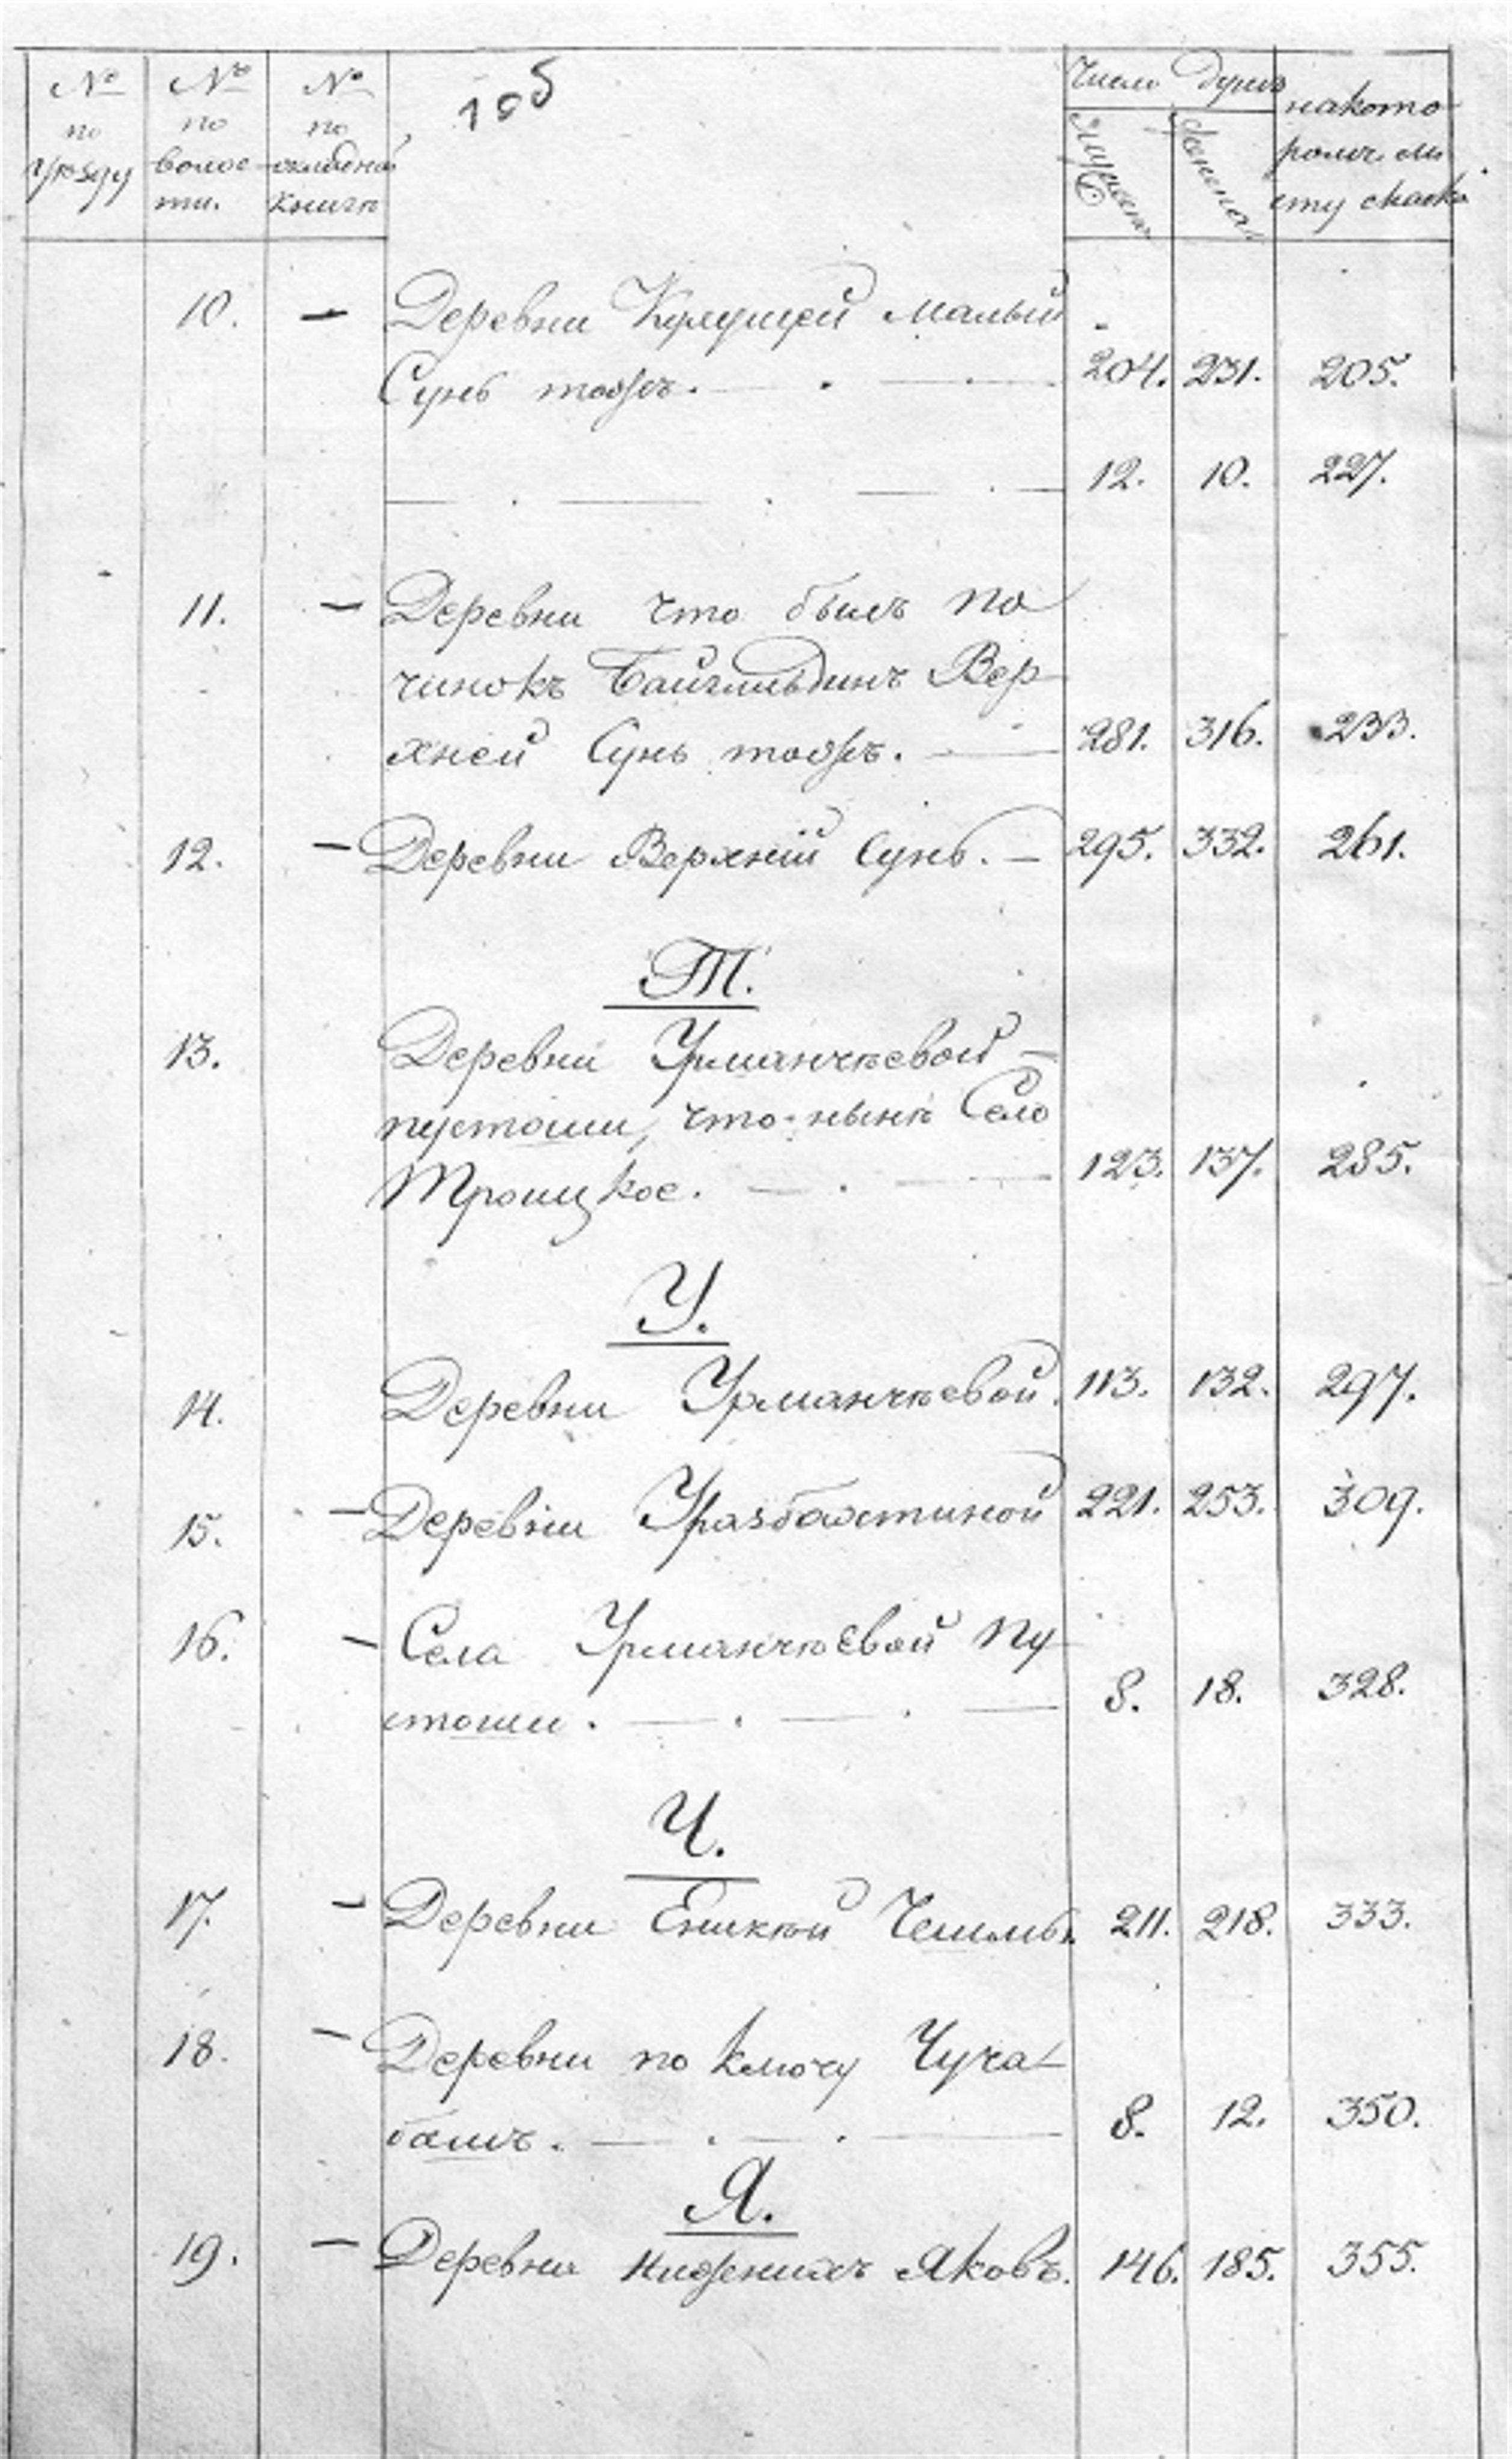 № по уѣзду
№ по волос-
ти.
№ по окладной
книгѣ
Число душъ
Мужеска
Женска
на кото-
ромъ ли-
сту сказка
10. — Деревни Кулущей Малый
Сунь тожъ. 204. 231. 205.
12. 10. 227.
11. — Деревни что былъ по
чинокъ Байгильдинъ Вер-
хней Сунь тожъ. 281. 316. 233.
12. — Деревни Верхній Сунь. 295. 332. 261.
Т.
13. Деревни Урманчѣевой
пустоши, что нынѣ Село
Троицкое. 123. 137. 285.
У.
14. Деревни Урманчѣевой. 113. 132. 297.
15. — Деревни Уразбахтиной 221. 253. 309.
16. — Села Урманчѣевой пу
стоши. 8. 18. 328.
Ч.
17. — Деревни Еникѣй Чешмы. 211. 218. 333.
18. — Деревни по ключу Чуча-
башъ. 8. 12. 350.
Я.
19. — Деревни Нижнихъ Яковъ. 146. 185. 355.